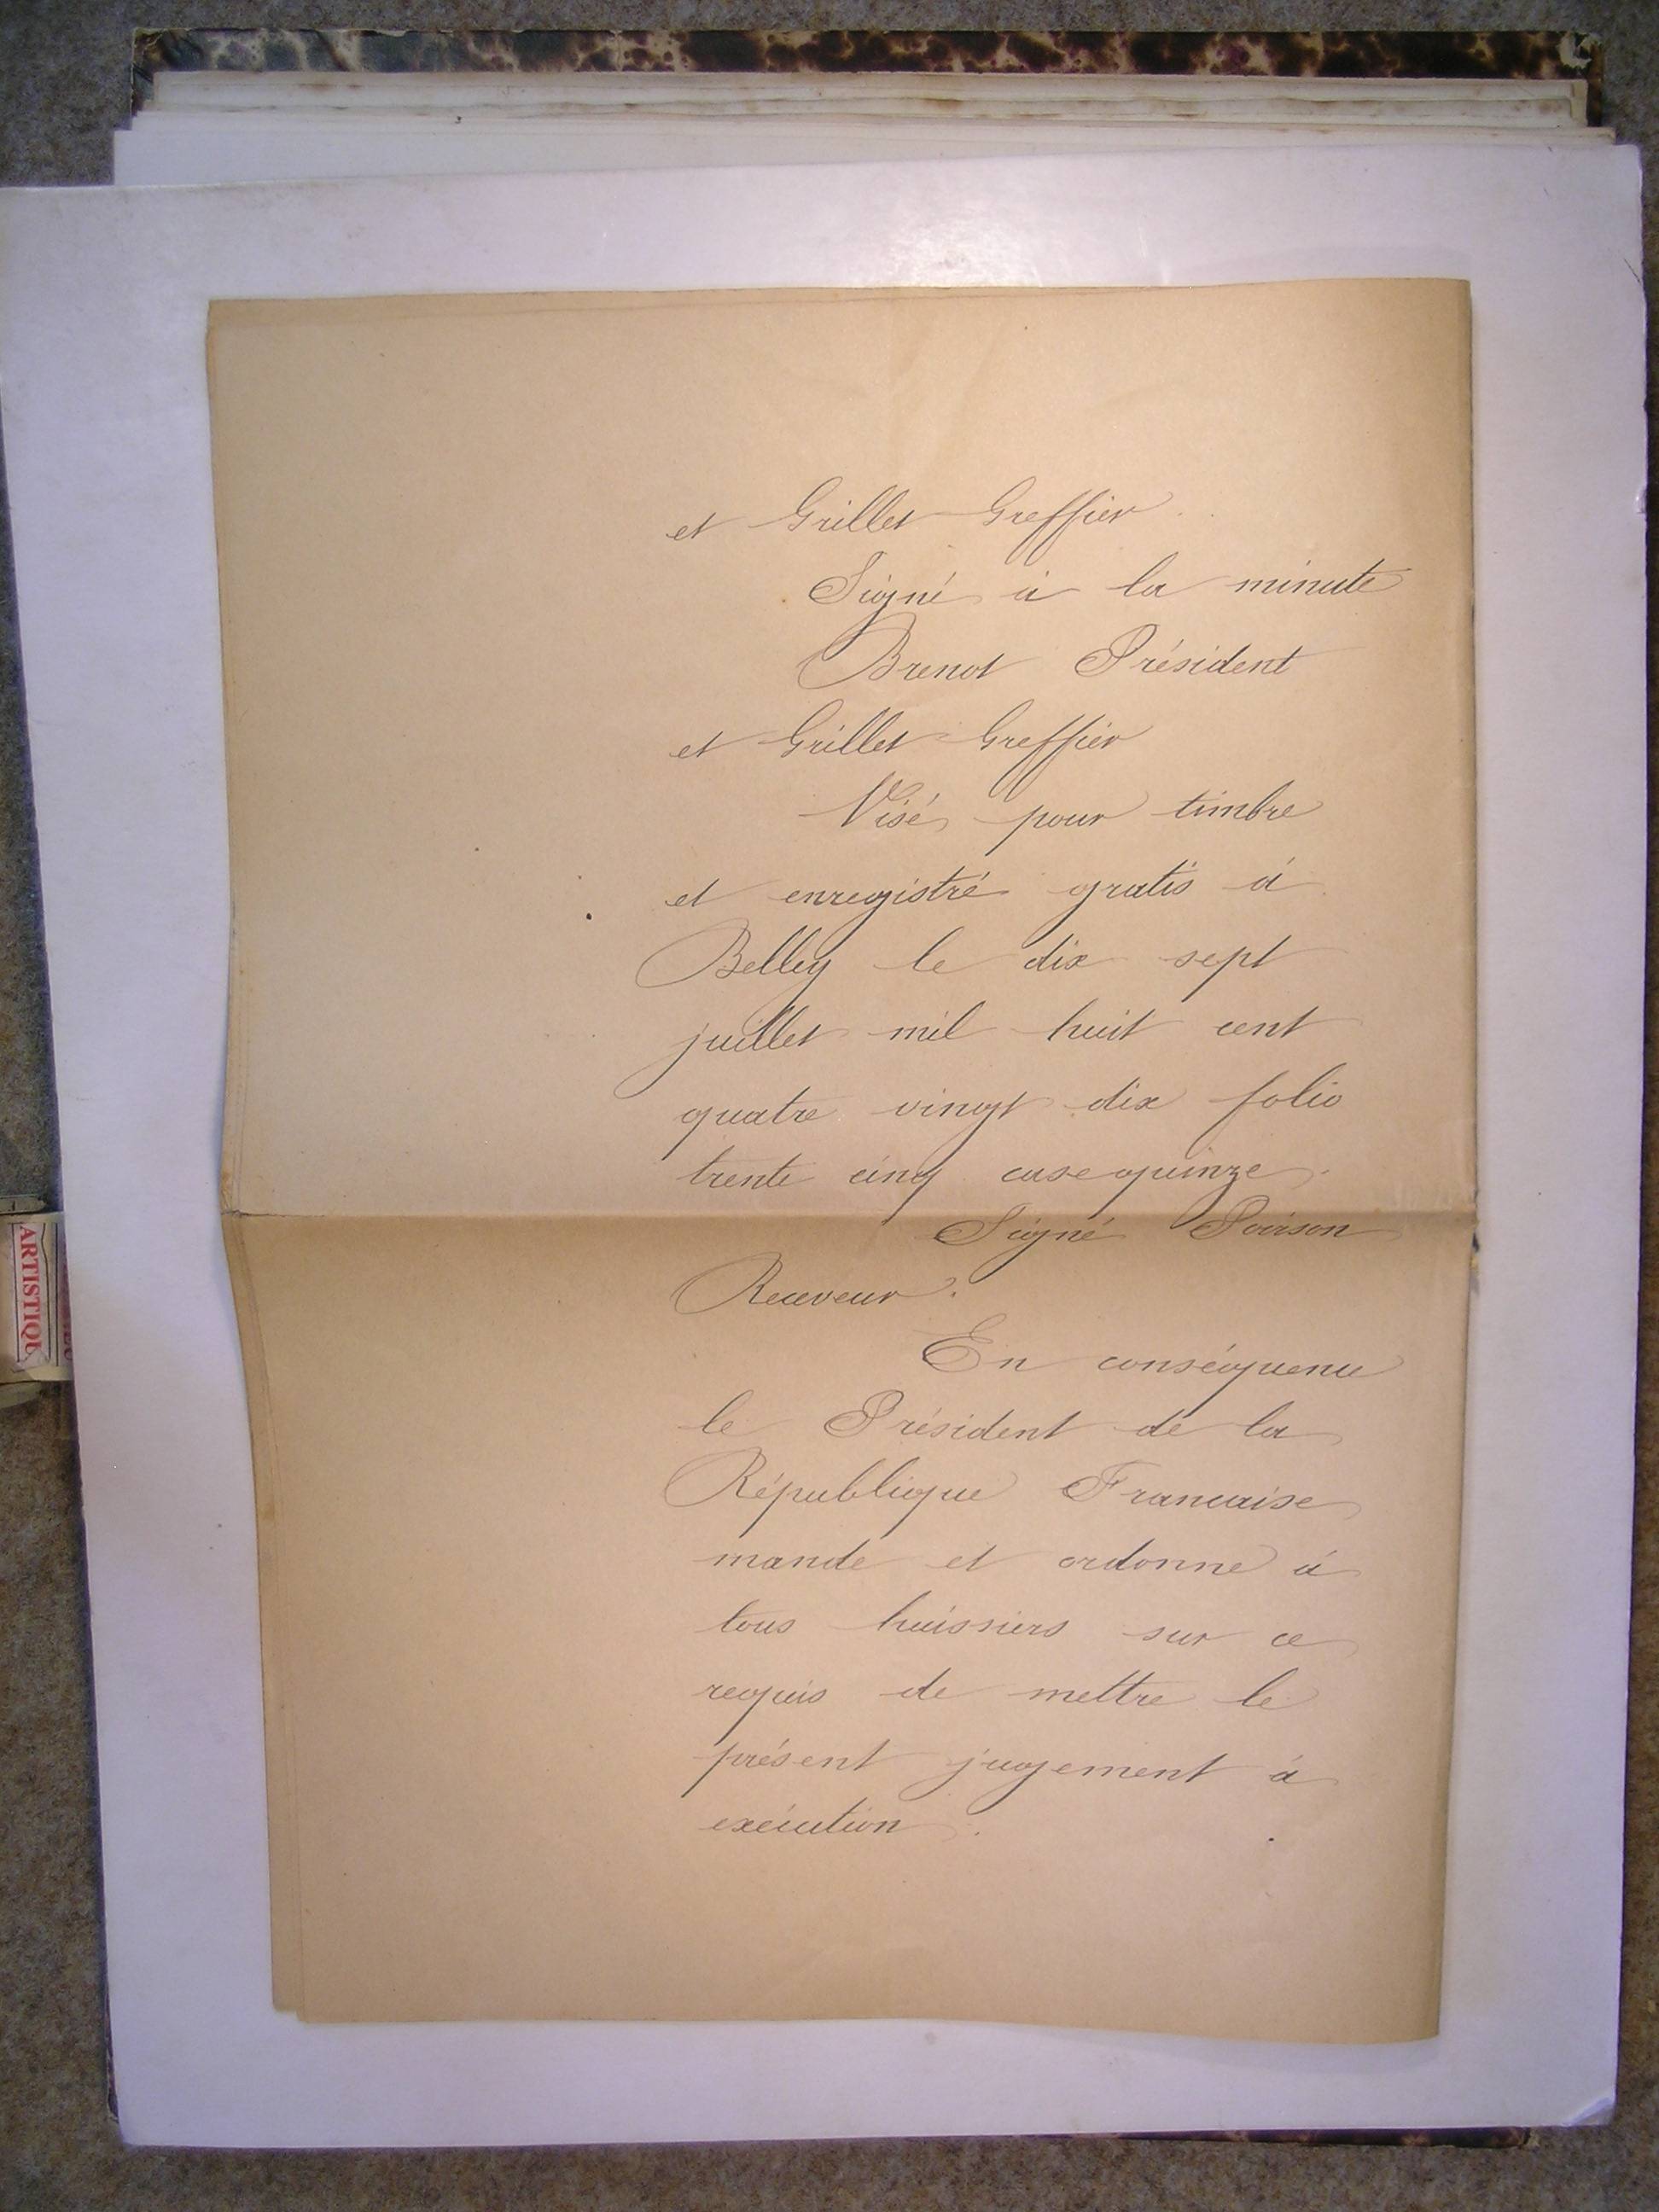 et Grillet Greffier
Signé à la minute
Brenot Président
et Grillet Greffier
Visé pour timbre
et enregistré gratis à
Belley le dix sept
juillet mil huit cent
quatre vingt dix folio
trente cinq case quinze.
Signé Poirson
Receveur.
En conséquence
le Président de la
République Francaise
mande et ordonne à
tous huissiers sur ce
requis de mettre le
présent jugement à
exécution.
ARTISTIQU